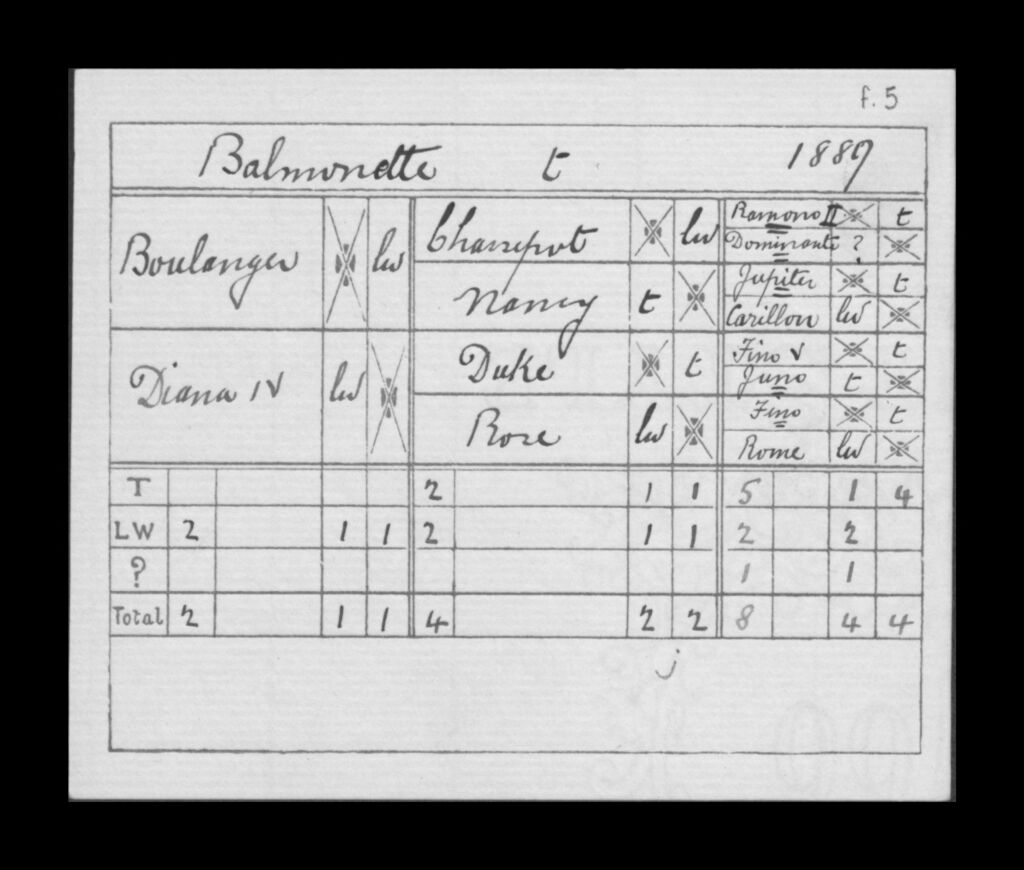 f. 5
Balmonette t 1889
Boulanger lw
Chassepot lw
Ramono II t
Dominante ?
Nancy t
Jupiter t
Carillon lw
Diana IV lw
Duke t
Fino V t
Juno t
Rose lw
Fino t
Rome lw
T 2 1 1 5 1 4
LW 2 1 1 2 1 1 2 2
? 1 1
Total 2 1 1 4 2 2 8 4 4
j